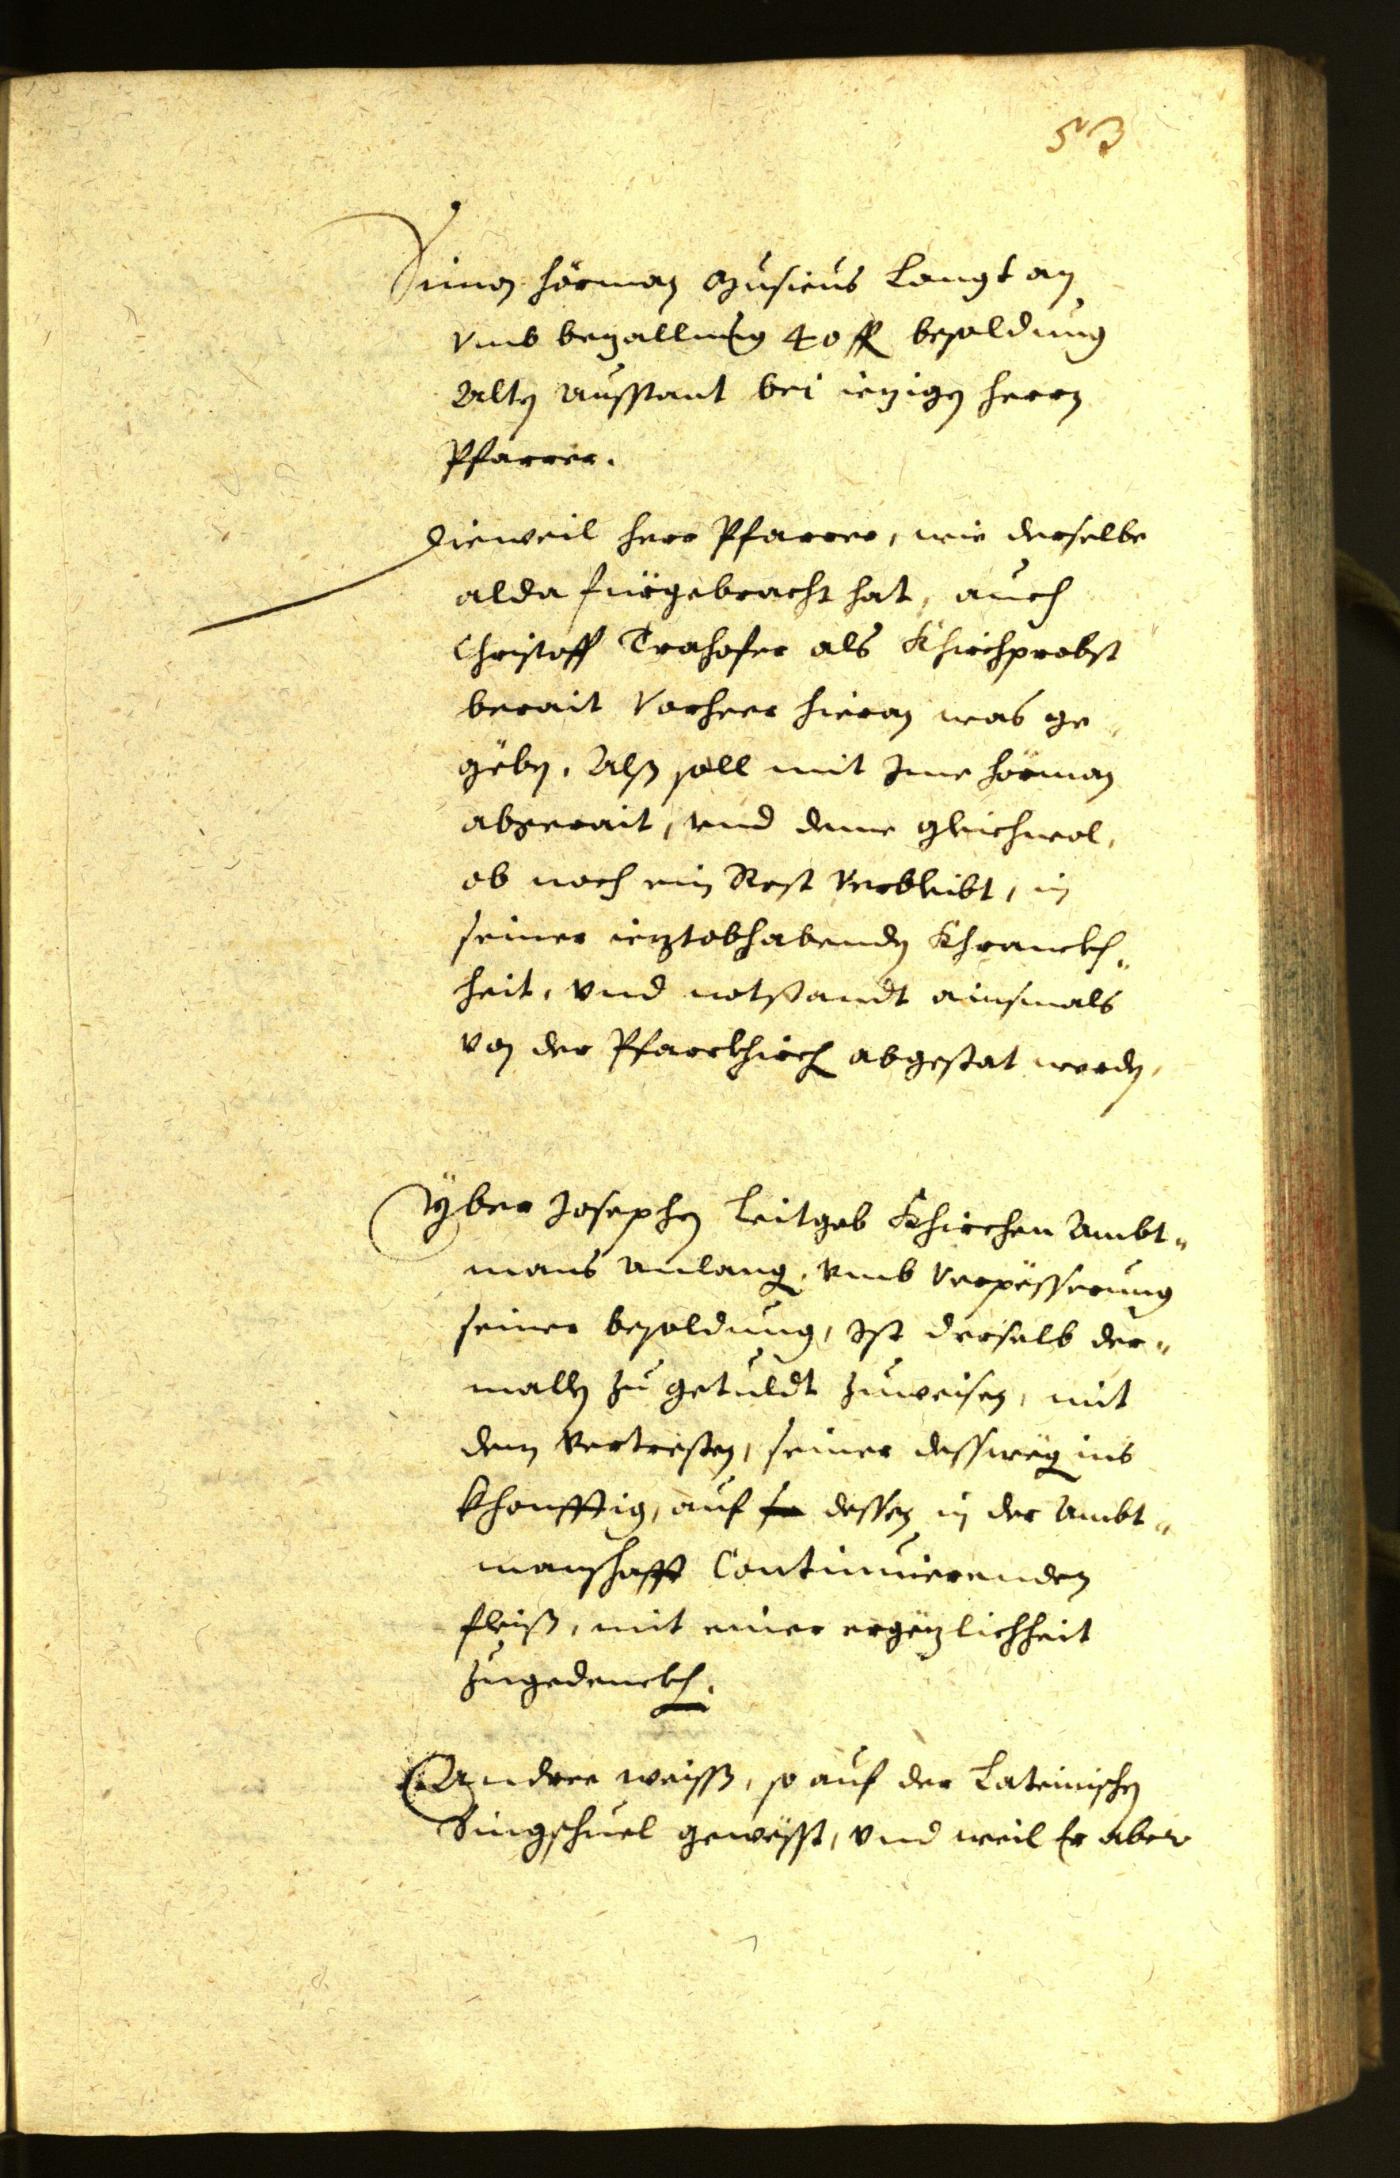 53
Simon Hörman Musicus Langt an
vmb bezallung 40 fl besoldung
Alten Ausstant bei iezigen Herrn
Pfarrer.
Dieweil Herr Pfarrer, wie derselbe
alda fürgebracht hat, auch
Christoff Trahofer als Khirchprobst
berait Vorheer hieran was ge„
geben, Alß soll mit Ime Hörman
abgerait, vnd deme gleichwol,
ob noch ein Rest Verbleibt, in
seiner ieztobhabenden Khranckh„
heit, vnd notstandt ainsmals
von der Pfarrkhirch abgestat werden,
Yber Josephen Leitgeb Khirchen Ambt„
mans Anlang, vmb Verpësserung
seiner besoldung, Ist derselb der„
mallen zu getuldt zuweisen, mit
dem Vertresten, seiner dessweg ins
khonfftig, auf dessen in der Ambt„
manschafft Continuierenden
fleiß, mit einer ergëzlichheit
zugedenckh.
Andree Weiss, so auf der Lateinischen
Singschuel gewësst, vnd weil Er aber